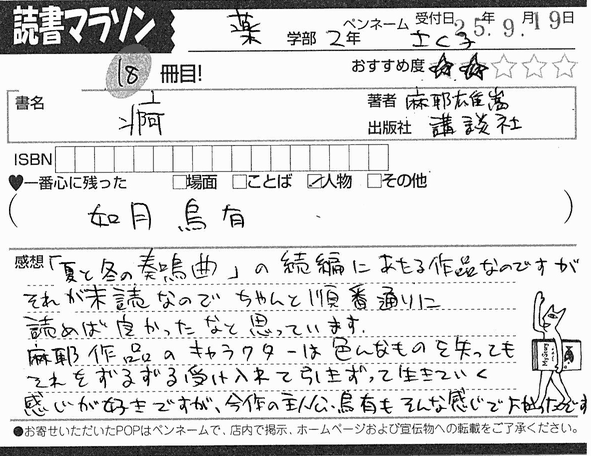 読書マラソン
薬 学部 2年 ペンネーム さく子 受付日 25年9月19日
18 冊目! おすすめ度 ★★☆☆☆
書名 痾 著者 麻耶雄嵩
出版社 講談社
ISBN
♥一番心に残った □場面 □ことば ☑人物 □その他
( 如月烏有 )
感想 「夏と冬の奏鳴曲」の続編にあたる作品なのですが
それが未読なので ちゃんと順番通りに
読めば良かったなと思っています。
麻耶作品のキャラクターは色んなものを失っても
それをずるずる受け入れて引きずって生きていく
感じが好きですが、今作の主人公、烏有もそんな感じでよかったです
●お寄せいただいたPOPはペンネームで、店内で掲示、ホームページおよび宣伝物への転載をご了承ください。